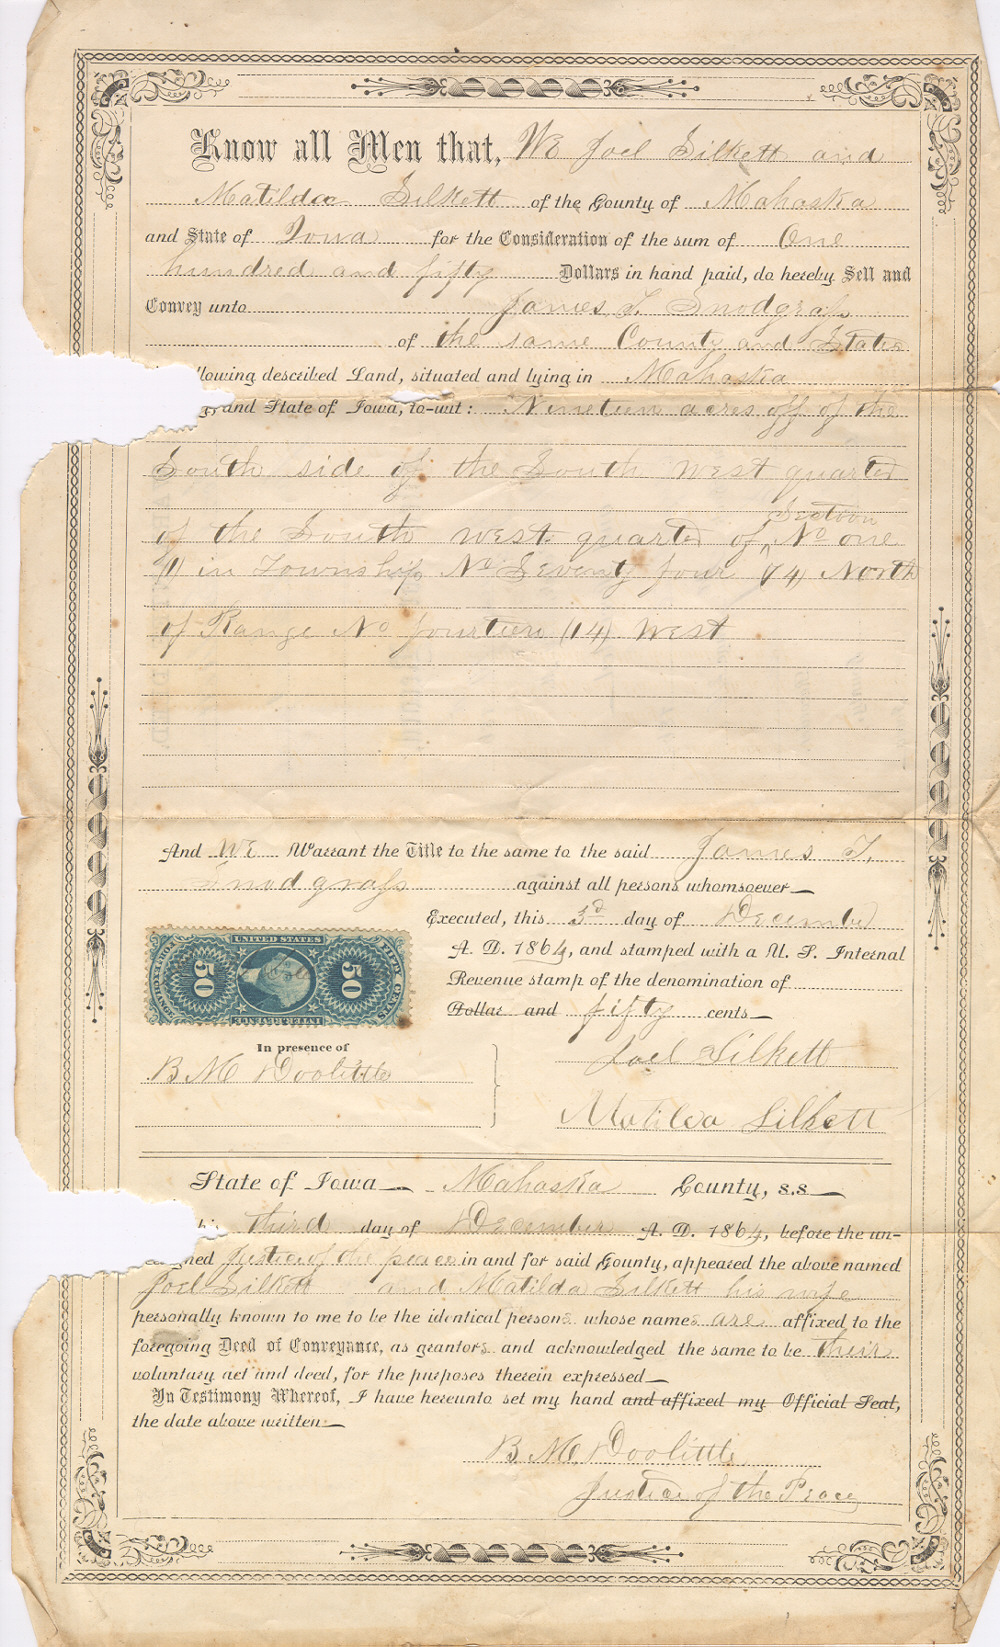 Know all Men that, We Joel Silkett and
Matilda Silkett of the County of Mahaska
and State of Iowa for the Consideration of the sum of One
hundred and fifty Dollars in hand paid, do hereby Sell and
Convey unto James T. Snodgrass
of the same County and State
llowing described Land, situated and lying in Mahaska
and State of Iowa, to-wit: Nineteen acres off of the
South side of the South west quarter
of the South west quarter of Section No one
(1) in Township No Seventy four (74) North
of Range No fourteen (14) West
And WE Warrant the Title to the same to the said James T.
Snodgrass against all persons whomsoever
Executed, this 3d day of December
A. D. 1864, and stamped with a U. S. Internal
Revenue stamp of the denomination of
Dollar and fifty cents
UNITED STATES
50 50
FIFTY CENTS
INTER. REV.
In presence of
B M Doolittle
Joel Silkett
Matilda Silkett
State of Iowa Mahaska County, s.s
third day of December A. D. 1864, before the un-
igned Justice of the peace in and for said County, appeared the above named
Joel Silkett and Matilda Silkett his wife
personally known to me to be the identical persons whose names are affixed to the
foregoing Deed of Conveyance, as grantors and acknowledged the same to be their
voluntary act and deed, for the purposes therein expressed
In Testimony Whereof, I have hereunto set my hand and affixed my Official Seal,
the date above written
B. M. Doolittle
Justice of the Peace